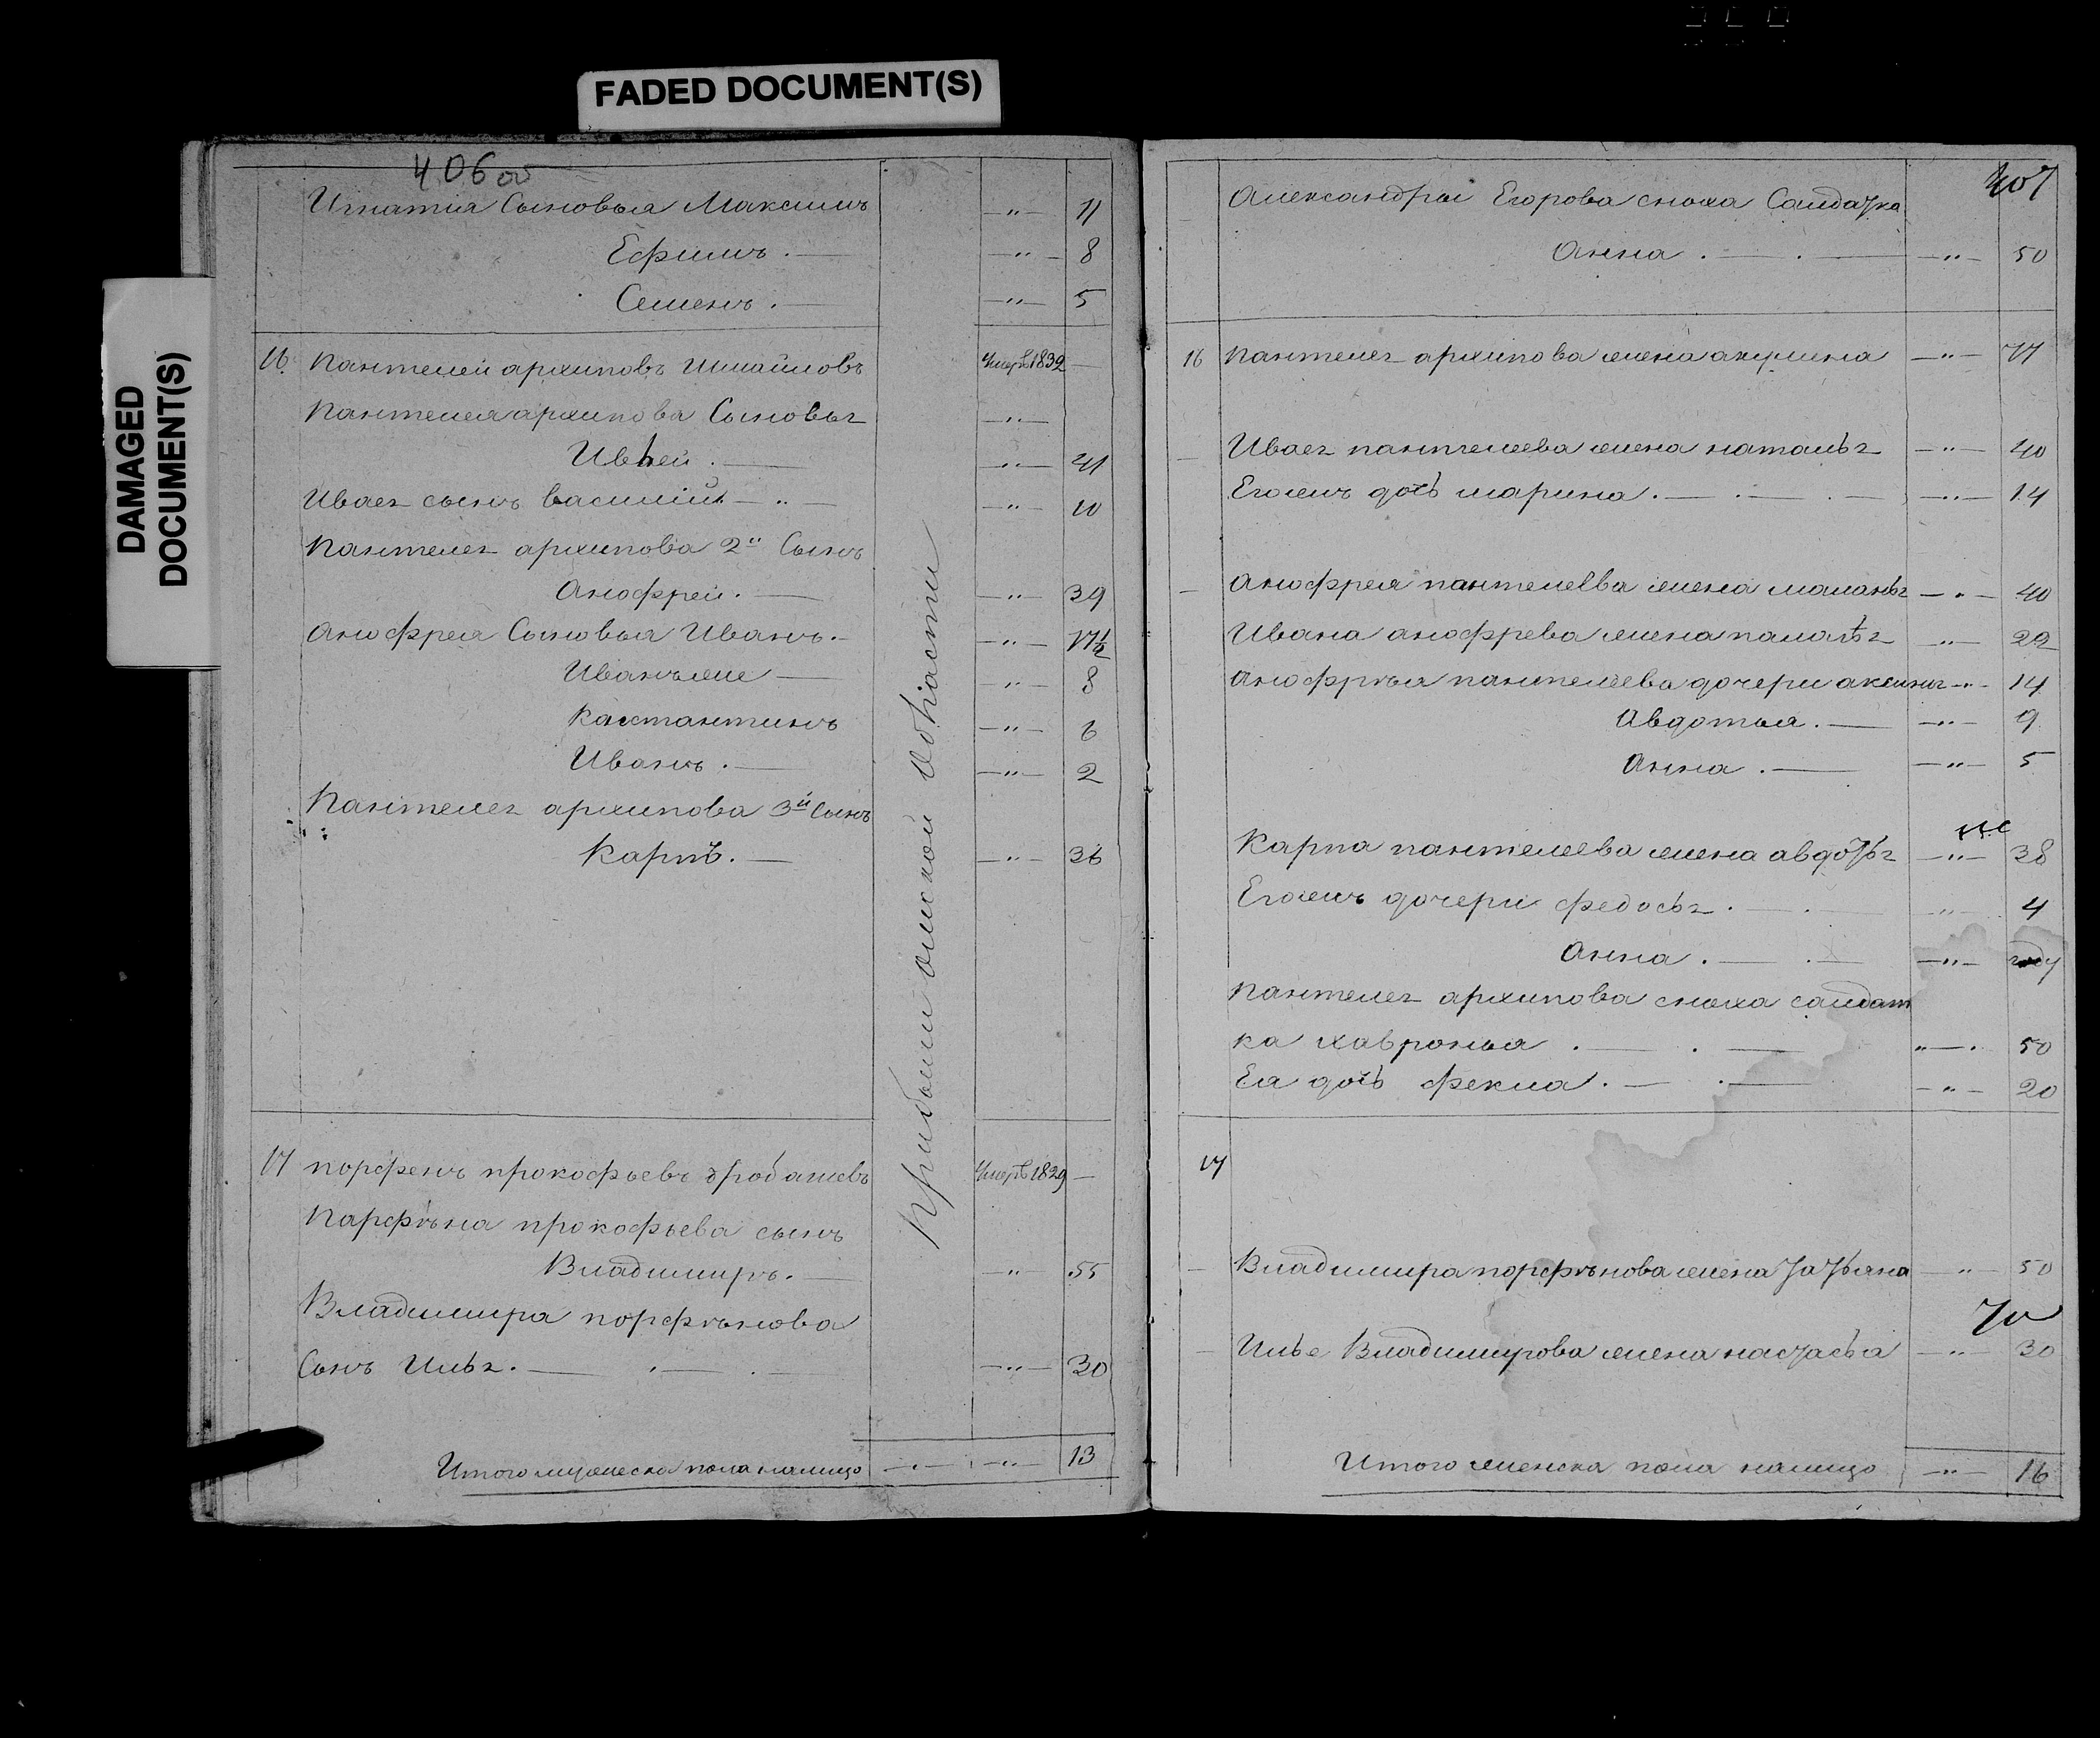 FADED DOCUMENT(S)
DAMAGED
DOCUMENT(S)
406 об
Игнатия Сыновья Максимъ — " — 11
Ефимъ — " — 8
Семенъ — " — 5
16 Пантелей архиповъ Умеръ 1832 —
Пантелея архипова Сыновья — " —
— " — 41
сынъ василий — " — 10
Пантелея архипова 2й Сынъ
Анофрей — " — 39
Анофрея Сыновья Иванъ — " — 17½
Иванъ же — " — 8
Кастантинъ — " — 6
Иванъ — " — 2
Пантелея архипова 3й Сынъ
Карпъ — " — 36
Прибыли омской области
17 порфенъ прокофьевъ Умеръ 1839 —
Парфѣна прокофьева сынъ
Владимиръ — " 55
Владимира порфѣнова
Сынъ Илья — " — 30
Итого мужеска пола налицо — " — 13
407
Александры Егорова сноха Салдатка
Анна — " — 50
16 Пантелея архипова жена акулина — " — 77
пантелеева жена наталья — " — 40
Егожъ дочь марина — " — 14
Анофрея пантелеева жена маланья — " — 40
Ивана анофрева жена палагѣя — " — 22
Анофрѣя пантелеева дочери аксинья — " — 14
Авдотья — " — 9
Анна — " — 5
Карпа пантелеева жена авдотья — " — 38
Егожъ дочери федосья — " — 4
Анна — " — году
Пантелея архипова сноха салдат
ка хавронья " — 50
Ея дочь фекла — " — 20
17
Владимира порфѣнова жена татьяна — " — 50
Илье Владимирова жена настасья — " — 30
Итого женска пола налицо — " — 16